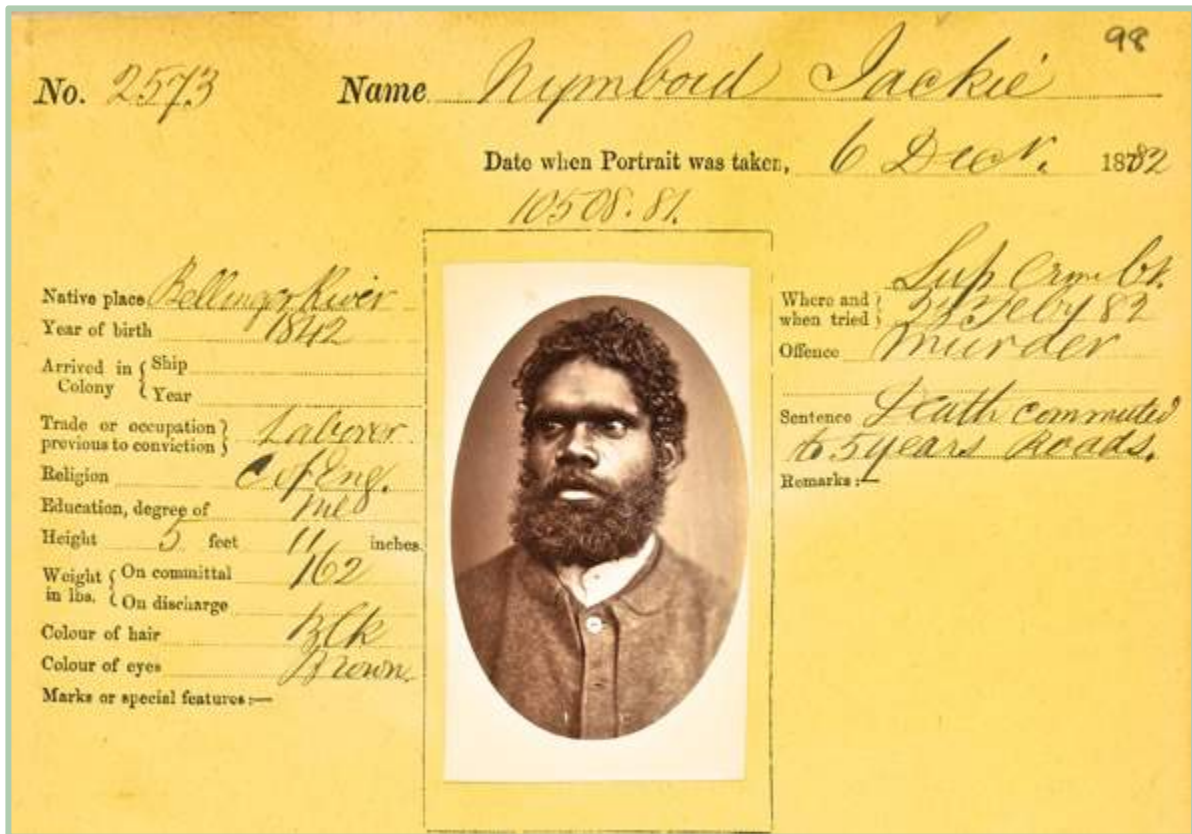 98
No. 2573 Name Nymboid Jackie
Date when Portrait was taken, 6 Decr. 1882
10508.81.
Native place Bellinger River
Year of birth 1842
Arrived in Colony { Ship
Year
Trade or occupation previous to conviction } Laborer
Religion C of Eng.
Education, degree of
Height 5 feet 11 inches.
Weight in lbs. { On committal 162
On discharge
Colour of hair Blk
Colour of eyes Brown.
Marks or special features:—
Sup Crim Ct.
Where and when tried } Feby 82
Offence Murder
Sentence Death commuted
to 5 years Roads.
Remarks:—